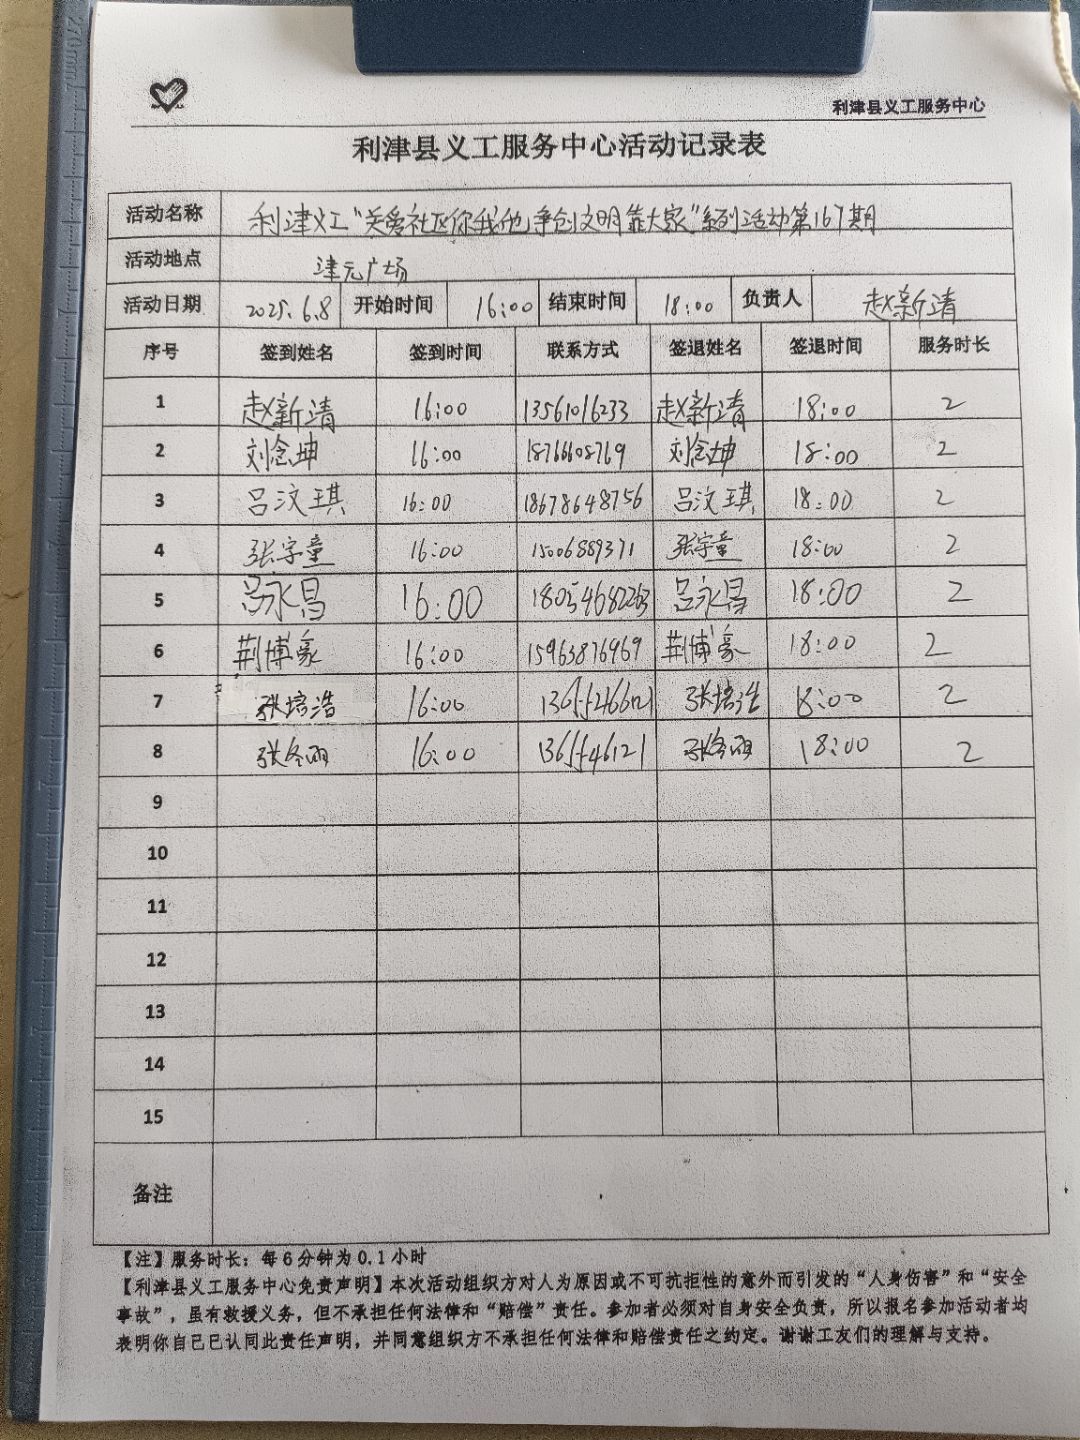 利津县义工服务中心
利津县义工服务中心活动记录表
活动名称 利津义工“关爱社区你我他,争创文明靠大家”系列活动第167期
活动地点 津元广场
活动日期 2025.6.8 开始时间 16:00 结束时间 18:00 负责人 赵新清
序号 签到姓名 签到时间 联系方式 签退姓名 签退时间 服务时长
1 赵新清 16:00 13561016233 赵新清 18:00 2
2 刘念坤 16:00 18766608769 刘念坤 18:00 2
3 吕汶琪 16:00 18678648756 吕汶琪 18:00 2
4 张宇童 16:00 15006889371 张宇童 18:00 2
5 吕永昌 16:00 18054682263 吕永昌 18:00 2
6 荆博豪 16:00 15963876969 荆博豪 18:00 2
7 张培浩 16:00 张培浩 18:00 2
8 16:00 18:00 2
9
10
11
12
13
14
15
备注
【注】服务时长：每6分钟为0.1小时
【利津县义工服务中心免责声明】本次活动组织方对人为原因或不可抗拒性的意外而引发的“人身伤害”和“安全
事故”，虽有救援义务，但不承担任何法律和“赔偿”责任。参加者必须对自身安全负责，所以报名参加活动者均
表明你自已已认同此责任声明，并同意组织方不承担任何法律和赔偿责任之约定。谢谢工友们的理解与支持。